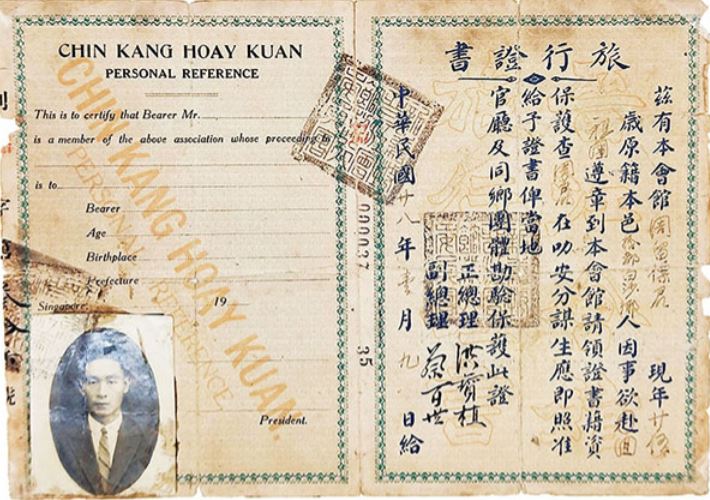 CHIN KANG HOAY KUAN
PERSONAL REFERENCE
This is to certify that Bearer Mr.
is a member of the above association whose proceeding to
is to
Bearer
Age
Birthplace
Prefecture
Singapore, 19
President.
CHIN KANG HOAY KUAN.
PERSONAL REFERENCE.
000037
35
旅行證書
茲有本會館 現年廿伍
歲原籍本邑 人因事欲赴回
祖國遵章到本會館請領證書藉資
保護查周君在叻安分謀生應即照准
給予證書俾當地
官廳及同鄉團體勘驗保護此證
正總理 洪寶植
副總理 蔡百世
中華民國廿八年壹月九日給